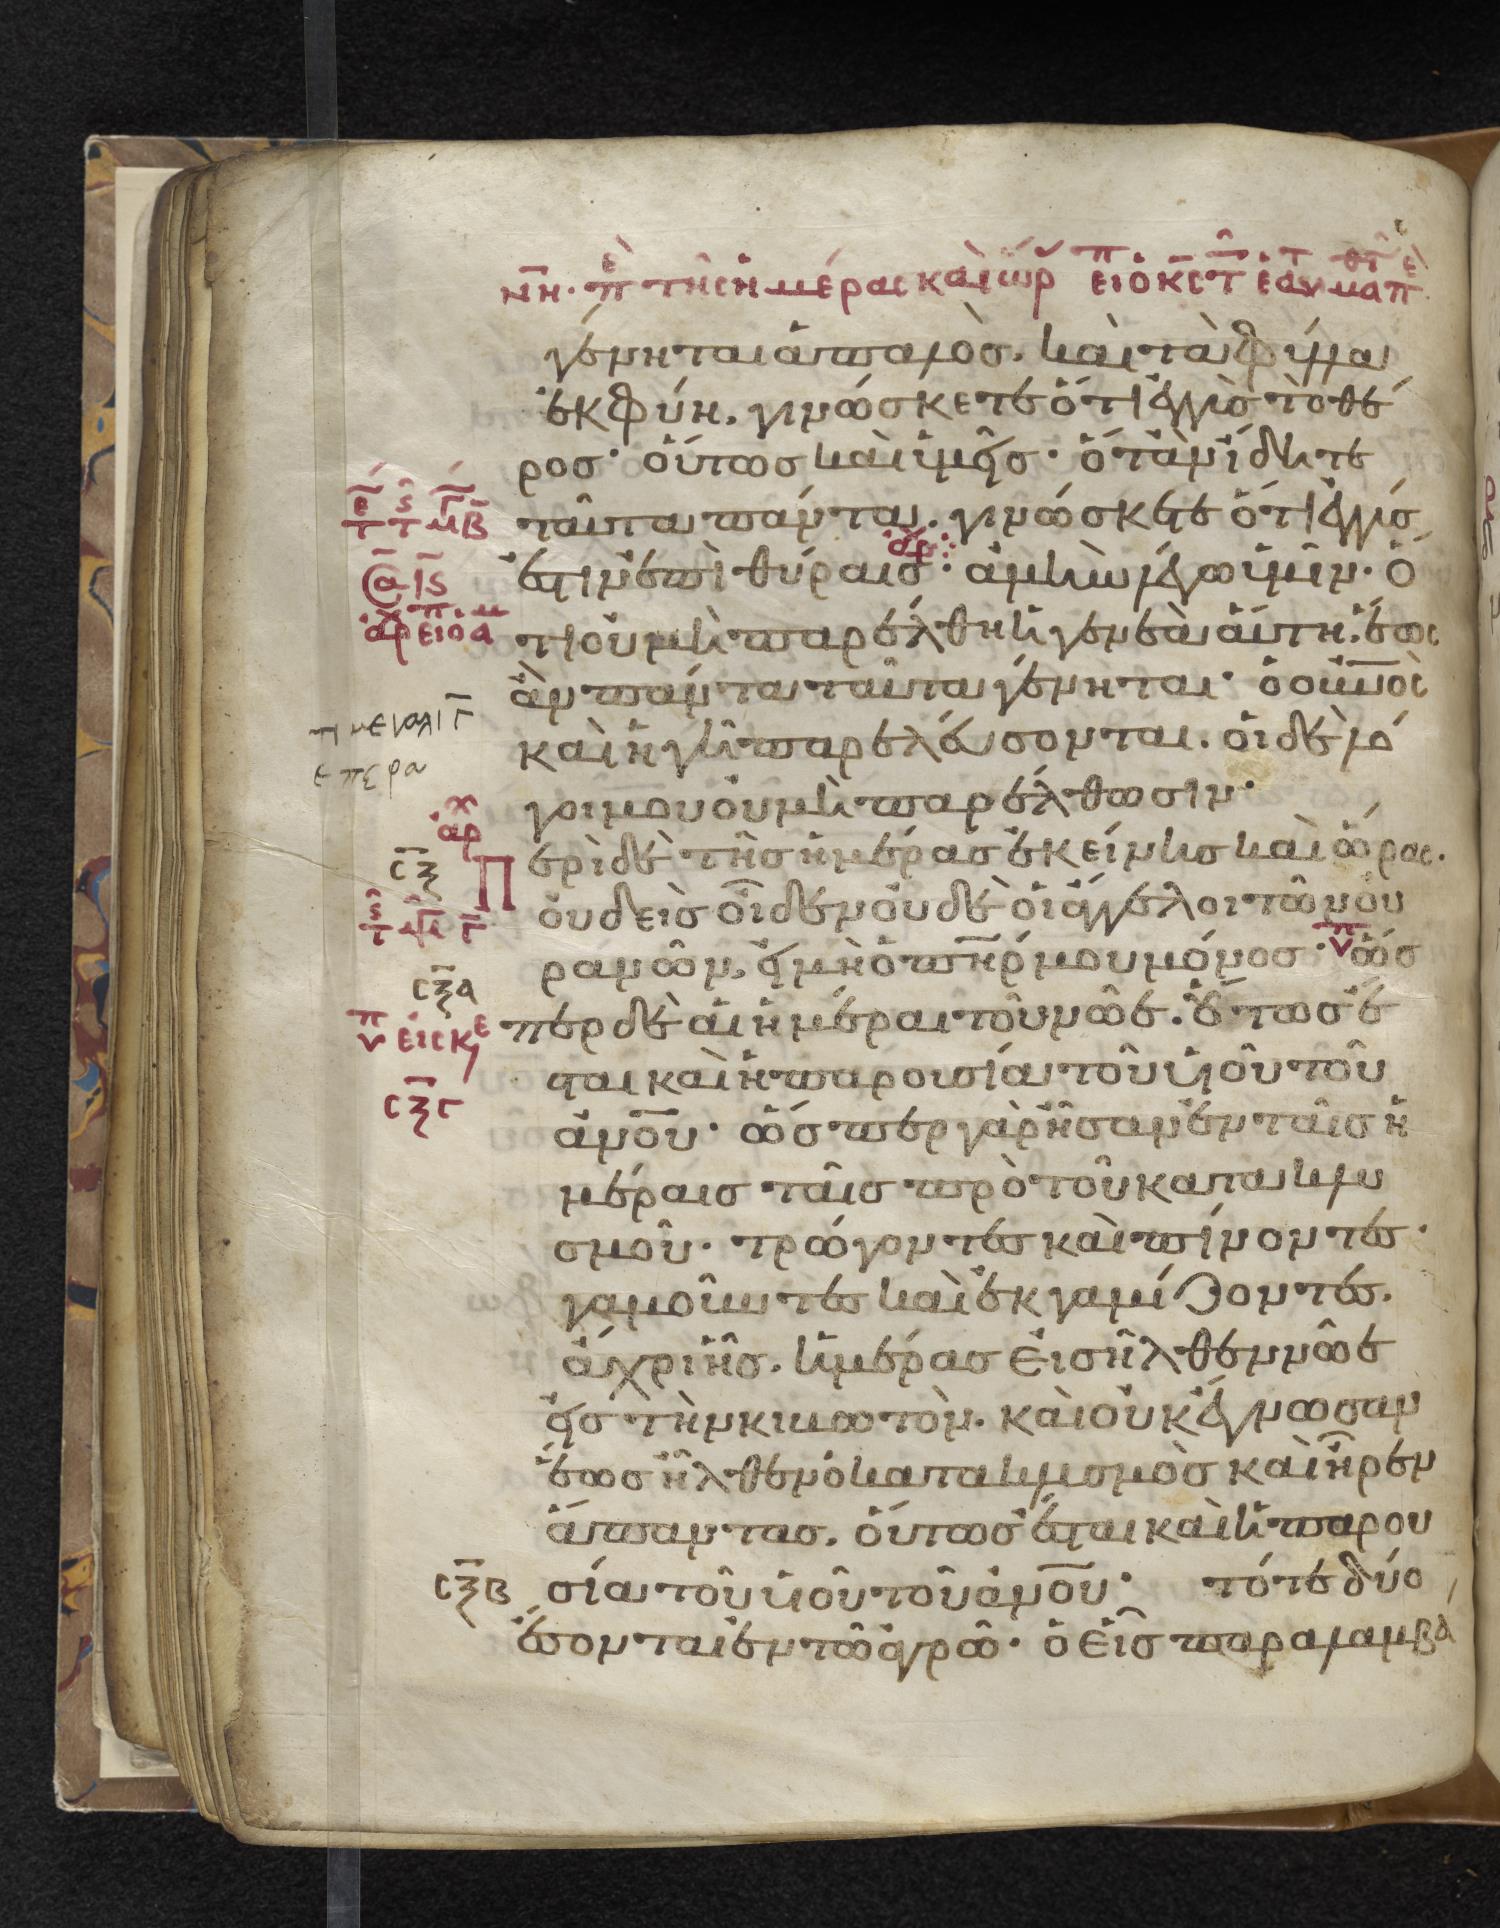 νη. πε τῆς ἡμέρας καὶ ὡρ
γένηται ἁπαλὸς. καὶ τὰ φύλλα
ἐκφύη, γινώσκετε ὅτι ἐγγὺς τὸ θέ
ρος· οὕτως καὶ ὑμεῖς· ὅταν ἴδητε
ταῦτα πάντα, γινώσκετε ὅτι ἐγγύς
ἐστιν ἐπὶ θύραις· ἀμὴν λέγω ὑμῖν· ὅ
τι οὐ μὴ παρέλθη ἡ γενεὰ αὕτη. ἕως
ἂν πάντα ταῦτα γένηται· ὁ οὐνος
καὶ ἡ γῆ παρελεύσονται. οἱ δὲ λό
γοι μου οὐ μὴ παρέλθωσιν·
αρ
σξ
Περὶ δὲ τῆς ἡμέρας ἐκείνης καὶ ὥρας.
οὐδεὶς οἶδεν οὐδὲ οἱ ἄγγελοι τῶν οὐ
ρανῶν, εἰ μὴ ὁ πηρ μου μόνος· ὥσ
σξα
περ δὲ αἱ ἡμέραι τοῦ νῶε. οὕτως ἔ
σται καὶ ἡ παρουσία τοῦ υἱοῦ τοῦ
σξγ
ἀνου· ὥσπερ γὰρ ἦσαν ἐν ταῖς ἡ
μέραις ταῖς πρὸ τοῦ κατακλυ
σμοῦ· τρώγοντες καὶ πίνοντες·
γαμοῦντες καὶ ἐκγαμίζοντες.
ἄχρι ἧς. ἡμέρας εἰσῆλθεν νῶε
εἰς τὴν κιβωτὸν. καὶ οὐκ ἔγνωσαν
ἕως ἦλθεν ὁ κατακλυσμὸς καὶ ἦρεν
ἅπαντας. οὕτως ἔσται καὶ ἡ παρου
σξβ σία τοῦ υἱοῦ τοῦ ἀνου· τότε δύο
ἔσονται ἐν τῶ ἀγρῶ· ὁ εἷς παραλαμβά